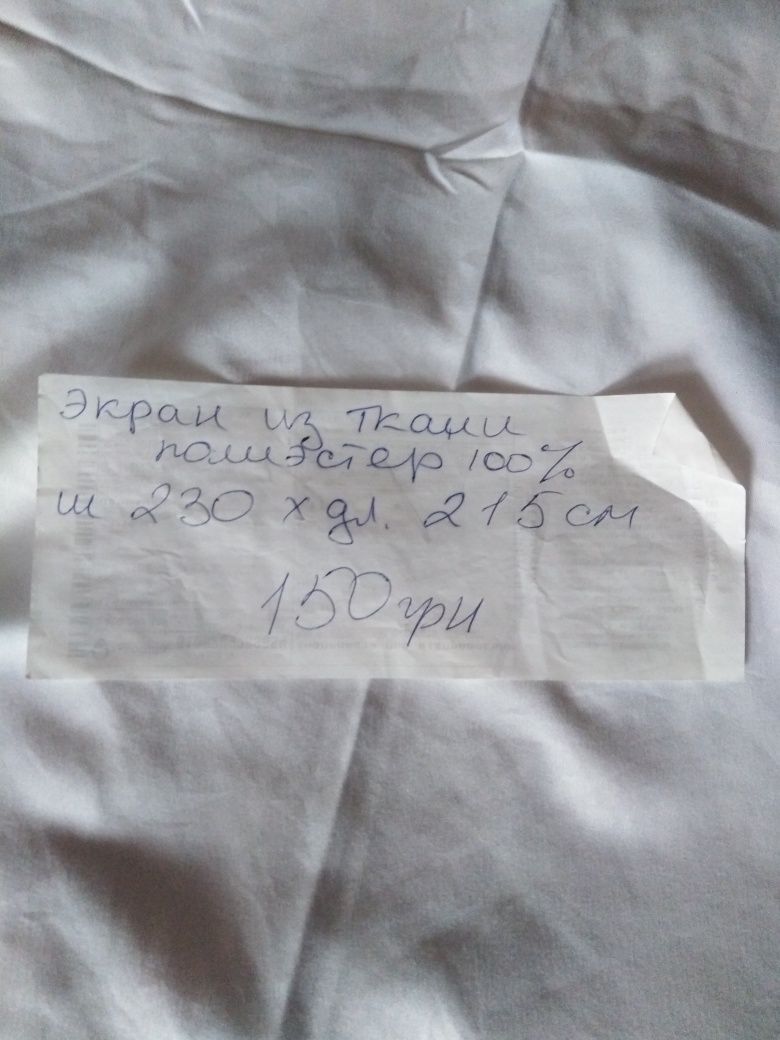 экран из ткани
полиэстер 100%
ш 230 х дл. 215 см
150 грн